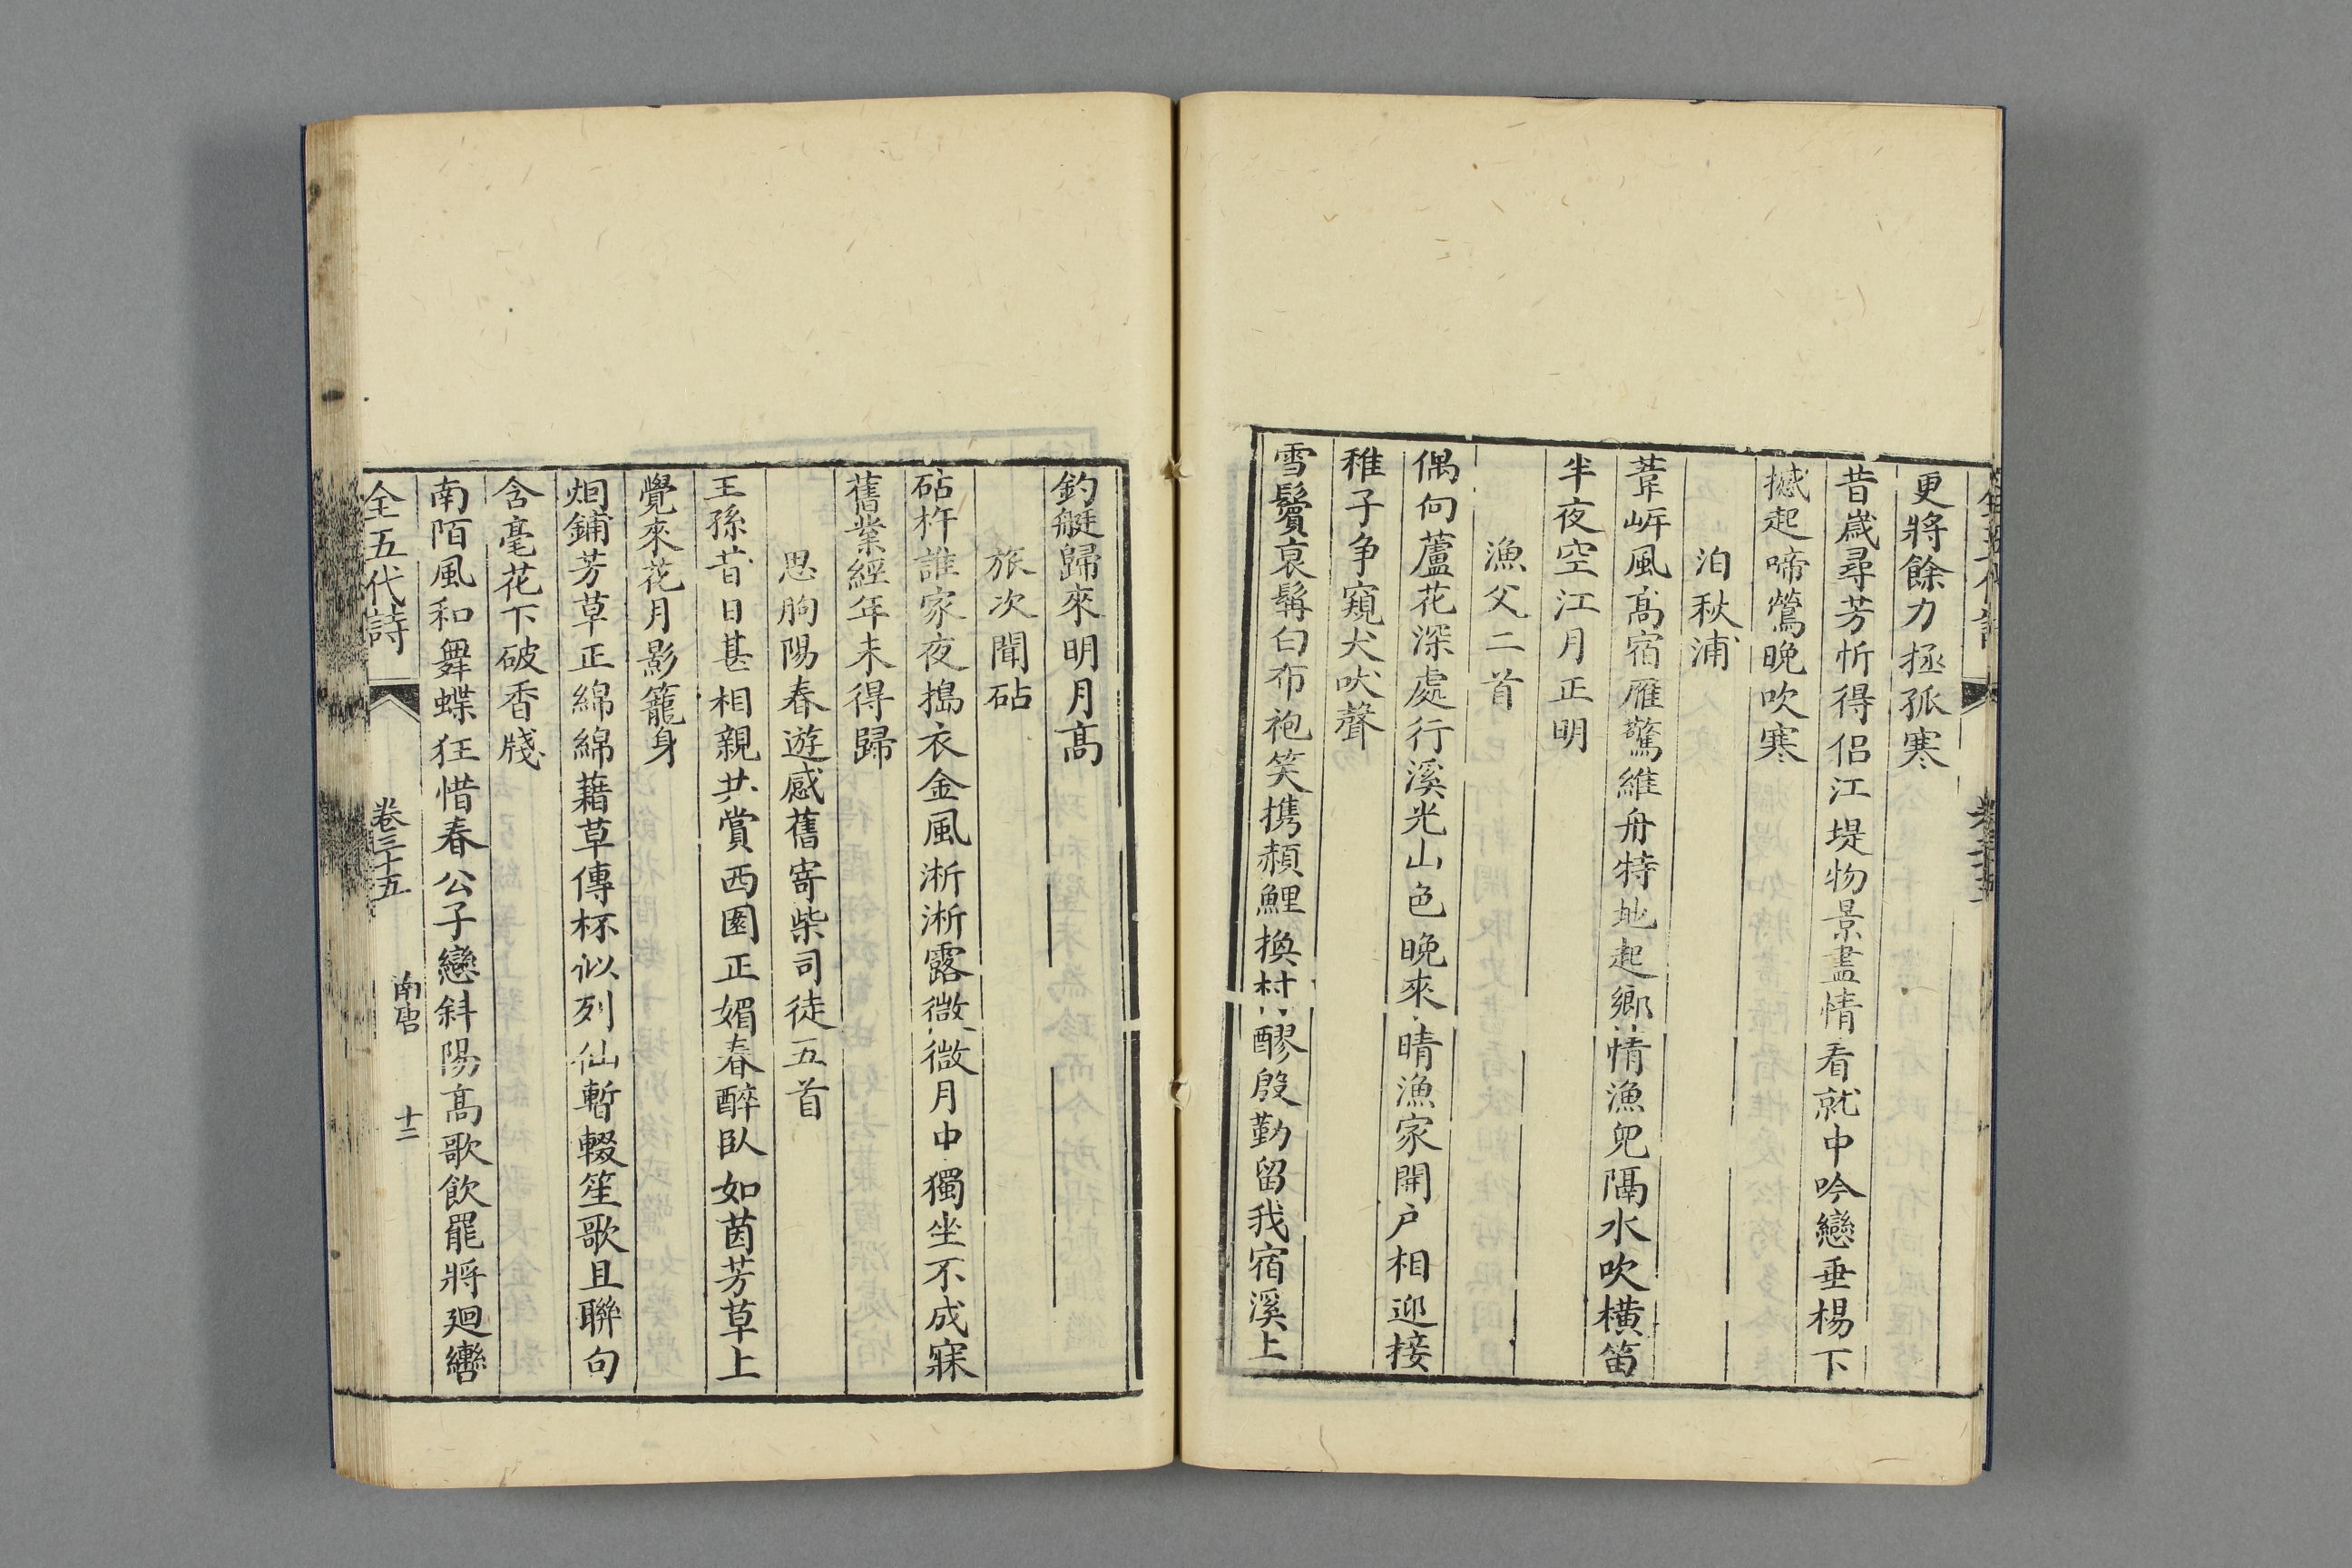 更將餘力拯孤寒
昔歲尋芳忻得侣江堤物景盡情看就中吟戀垂楊下
撼起啼鶯晚吹寒
泊秋浦
葦岍風髙宿雁驚維舟特地起鄉情漁兒隔水吹橫笛
半夜空江月正明
漁父二首
偶向蘆花深處行溪光山色晚來晴漁家開户相迎接
稚子争窺犬吠聲
雪鬢衰髯白布袍笑携赬鯉換村醪殷勤留我宿溪上
釣艇歸來明月髙
旅次聞砧
砧杵誰家夜搗衣金風淅淅露微微月中獨坐不成寐
舊業經年未得歸
思朐陽春遊感舊寄柴司徒五首
王孫昔日甚相親共賞西園正媚春醉臥如茵芳草上
覺來花月影籠身
烟鋪芳草正綿綿藉草傳杯似列仙暫輟笙歌且聯句
含毫花下破香牋
南陌風和舞蝶狂惜春公子戀斜陽髙歌飲罷將廻轡
全五代詩
卷三十五
南唐
十二